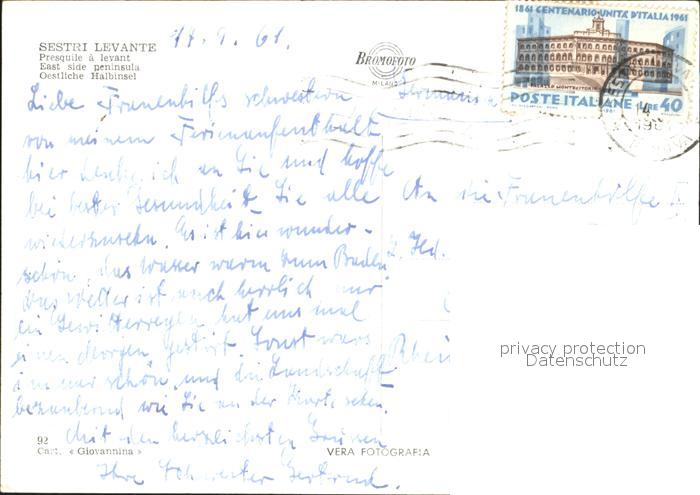 14.9.61.
SESTRI LEVANTE
Presquile à levant
East side peninsula
Oestliche Halbinsel
BROMOFOTO
MILANO
1861 CENTENARIO·UNITÀ D'ITALIA 1961
PALAZZO MONTECITORIO
POSTE ITALIANE LIRE 40
Liebe Frauenhilfsschwestern
von meinem Ferienaufenthalt
hier denke ich an Sie und hoffe
bei bester Gesundheit Sie alle
wiederzusehn. Es ist hier wunder-
schön, das Wasser warm zum Baden
das Wetter ist auch herrlich nur
ein Gewitterregen hat uns mal
einen Morgen gestört. Sonst wars
immer schön und die Landschaft
bezaubernd wie Sie an der Karte sehen.
Mit den herzlichsten Grüssen
Ihre Schwester Gertrud.
An die Frauenhilfe
Rhein
privacy protection
Datenschutz
92
Cart. « Giovannina »
VERA FOTOGRAFIA